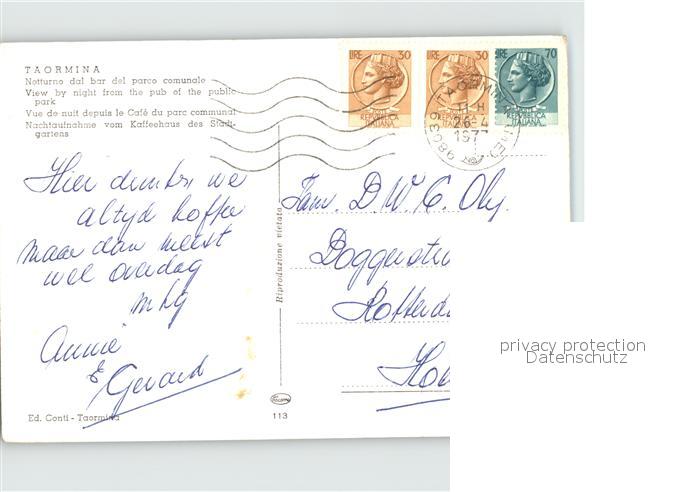 TAORMINA
Notturno dal bar del parco comunale
View by night from the pub of the public
park
Vue de nuit depuis le Café du parc communal
Nachtaufnahme vom Kaffeehaus des Stadt-
gartens
LIRE 30
LIRE 30
LIRE 70
POSTE
REPUBBLICA
ITALIANA
REPUBBLICA
ITALIANA
REPUBBLICA
ITALIANA
98039 TAORMINA (ME)
26-4
1977
Hier drinken we
altijd koffie
maar dan meest
wel overdag
m hg
Annie
& Gerard
Fam. D W C Oly.
Doggerstr
Rotterd
Ho
Riproduzione vietata
privacy protection
Datenschutz
Ed. Conti - Taormina
113